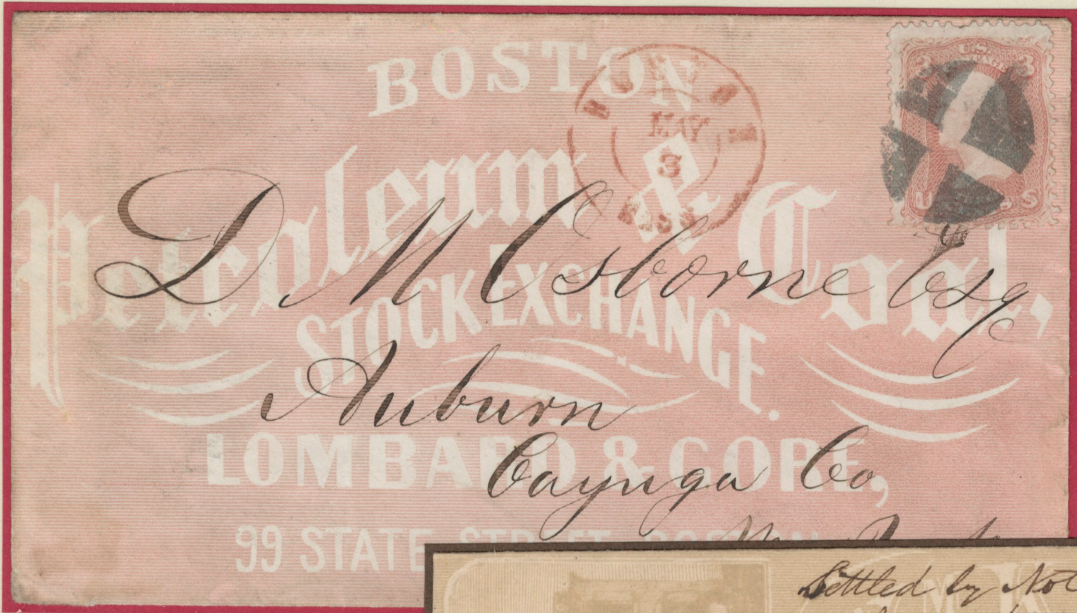 BOSTON
Petroleum & Coal,
STOCK EXCHANGE.
LOMBARD & GORE,
99 STATE STREET BOSTON
BOSTON
MAY
3
MASS
3 U.S. 3
POSTAGE
U S
D M Osborne Esq
Auburn
Cayuga Co
Settled by Not